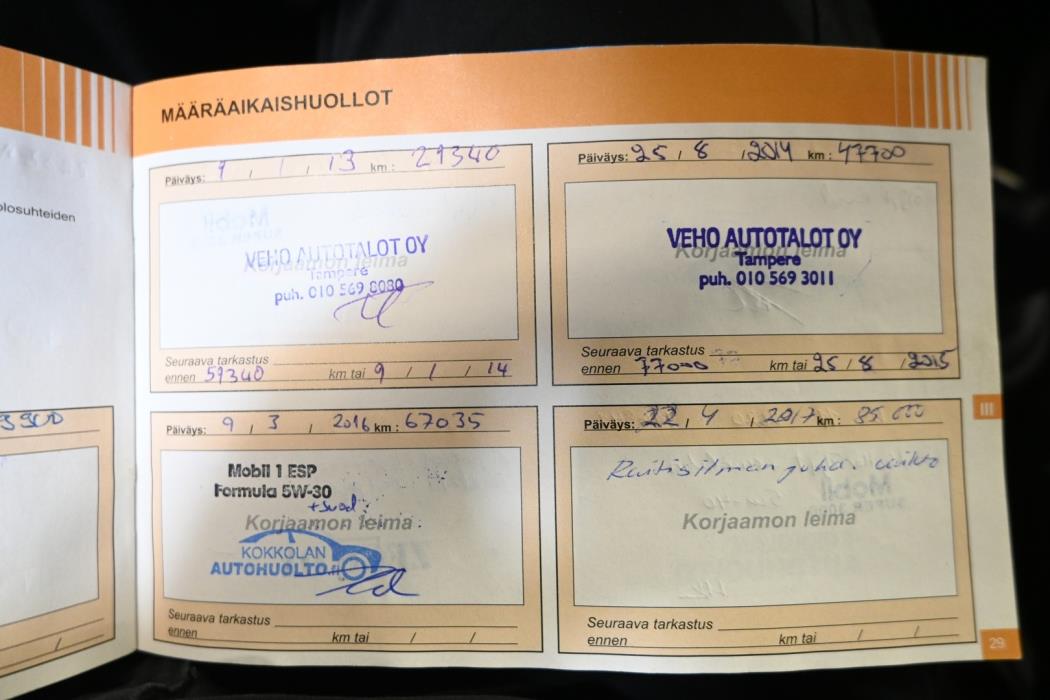 olosuhteiden
MÄÄRÄAIKAISHUOLLOT
Päiväys: 9 / 1 / 13 km: 29340
VEHO AUTOTALOT OY
Korjaamon leima
Tampere
puh. 010 569 8080
Seuraava tarkastus
ennen 59340 km tai 9 / 1 / 14
Päiväys: 25 / 8 / 2014 km: 47700
VEHO AUTOTALOT OY
Korjaamon leima
Tampere
puh. 010 569 3011
Seuraava tarkastus
ennen 77000 km tai 25 / 8 / 2015
Päiväys: 9 / 3 / 2016 km: 67035
Mobil 1 ESP
Formula 5W-30
Korjaamon leima
KOKKOLAN
AUTOHUOLTO.fi
Seuraava tarkastus
ennen km tai / /
Päiväys: 22 / 4 / 2017 km: 85000
Korjaamon leima
Seuraava tarkastus
ennen km tai / /
III
29